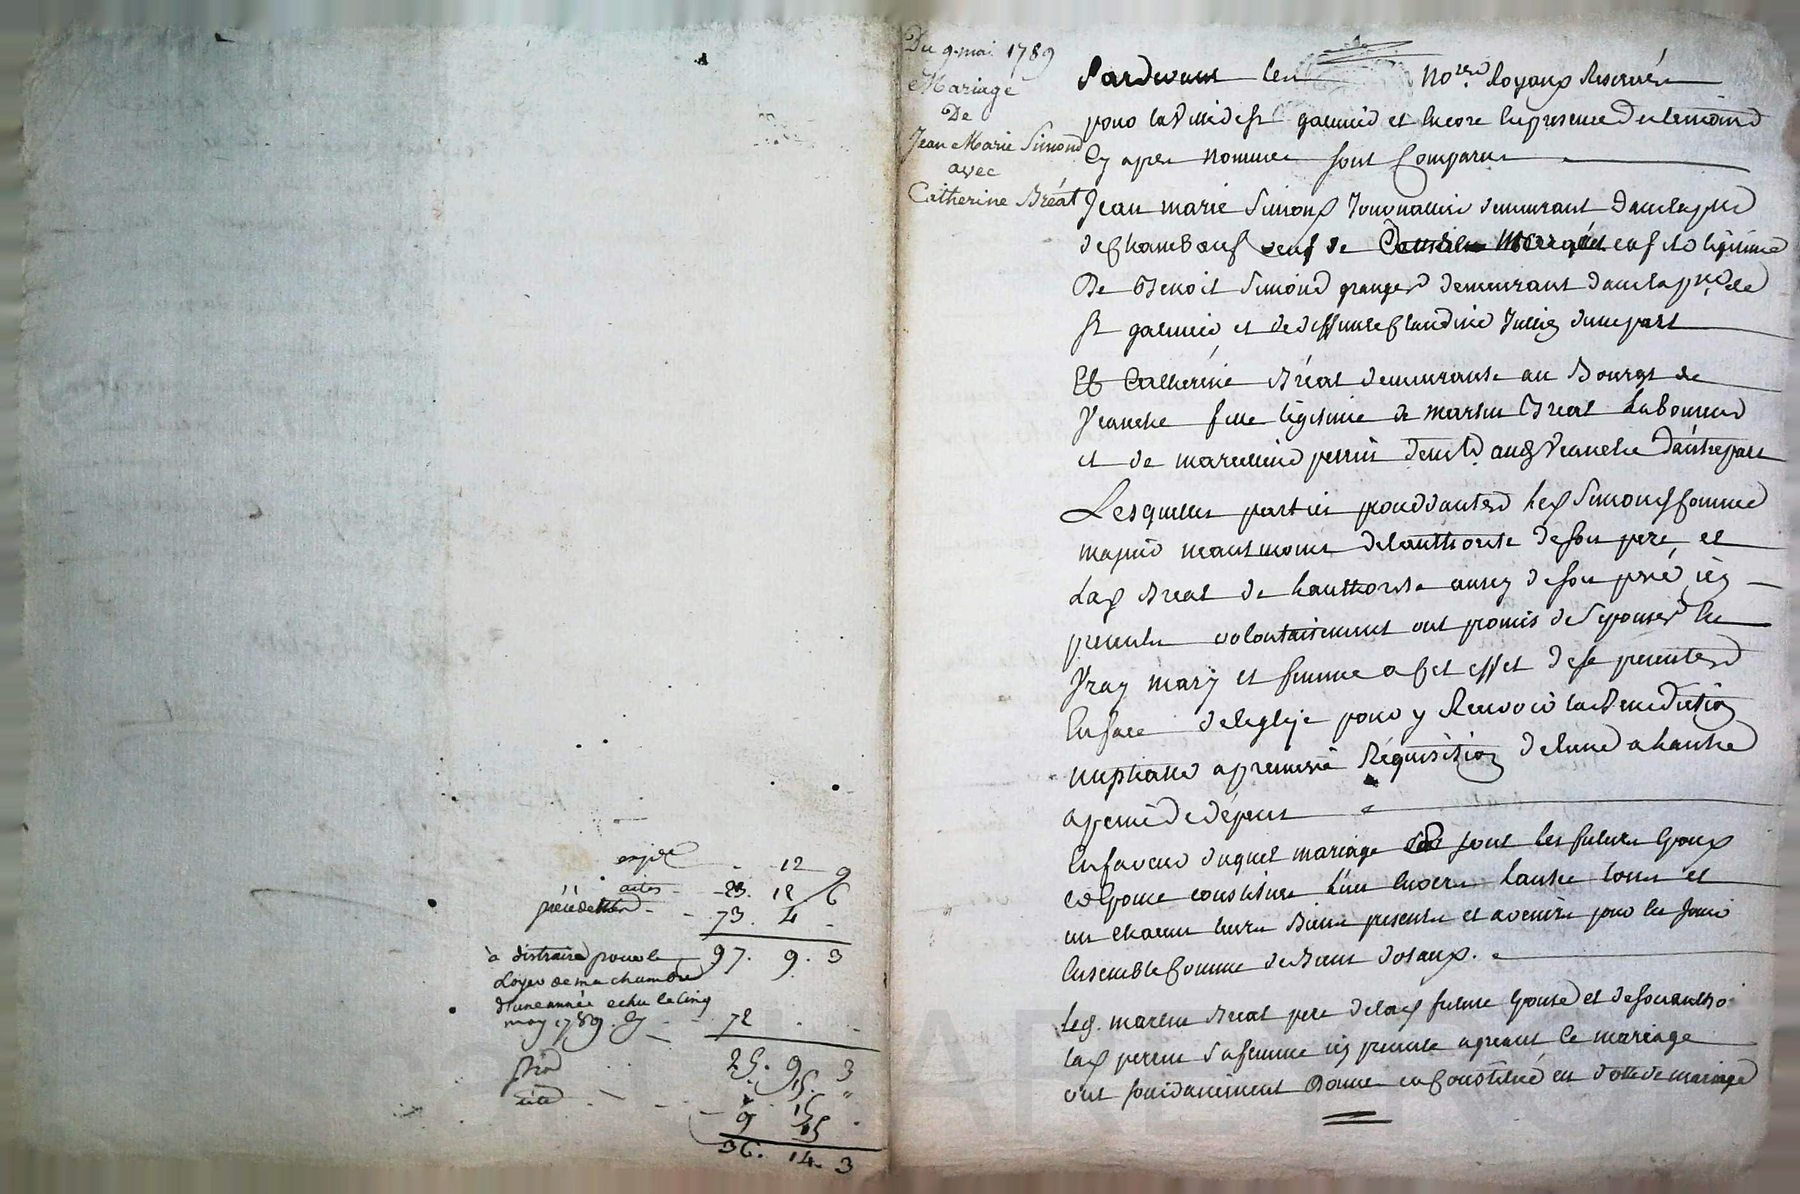 expde - 12 9
actes - 23. 18 6
précédettes - - 73. 4 -
97. 9. 3
à distraire pour le
Loyer de ma chambre
d'une année echu le cinq
may 1789. Cy - - 72 . -
25. 9. 3
15. "
9 15 .
36. 14. 3
Du 9. mai 1789
Mariage
De
Jean Marie Simond
avec
Catherine Bréat
Pardevant les No.res Royaux Reservés
pour la Ville de St galmier et encore en presence des temoins
Cy apres nommes sont Comparus
Jean marie Simond Journalier demurant dans la psse
de Chambœuf veuf de enf fils legitime
De Benoit Simond granger demeurant dans la psse de
St galmier et de deffunte Claudine Jullien d'une part
Et Catherine Bréat demeurante au Bourg de
Veauche fille legitime de martin Breat Laboureur
et de marcelline perrin demts aud Veauche d'autre part
Lesquelles parties procedantes led Simond comme
majeur neantmoins de lauthorité de son pere et
Lad Breat de lauthorité aussy de son pere icy
presents volontairement ont promis de s'epouser en
Vray mary et femme a cet effet de se presenter
En face de leglise pour y Recevoir la Benediction
nuptialle a premiere Réquisition de lune a lautre
a peine de dépens
En faveur duquel mariage sont les futurs Epoux
et Epouse constitués l'un envers lautre tous et
un chacun leurs Biens presents et avenirs pour en Jouir
Ensemble Comme de Biens dotaux.
Led. martin Breat pere de lad future Epouse et de son autho
lad perrin sa femme icy presente agreant ce mariage
ont solidairement Donné et Constitué en dotte de mariage